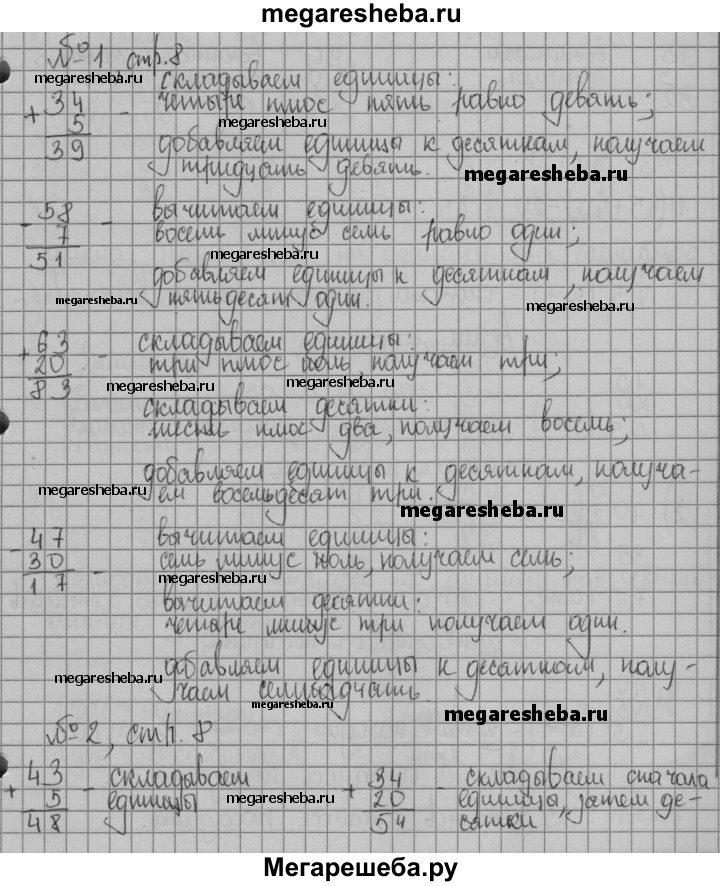 megaresheba.ru
№1 стр. 8
megaresheba.ru
+ 34
5
39
- складываем единицы:
четыре плюс пять равно девять;
megaresheba.ru
добавляем единицы к десяткам, получаем
тридцать девять.
megaresheba.ru
- 58
7
51
- вычитаем единицы:
восемь минус семь равно один;
megaresheba.ru
добавляем единицы к десяткам, получаем
megaresheba.ru
пятьдесят один.
megaresheba.ru
+ 63
20
83
- складываем единицы:
три плюс ноль, получаем три;
megaresheba.ru
megaresheba.ru
складываем десятки:
шесть плюс два, получаем восемь;
добавляем единицы к десяткам, получа-
ем восемьдесят три.
megaresheba.ru
megaresheba.ru
- 47
30
17
- вычитаем единицы:
семь минус ноль, получаем семь;
megaresheba.ru
вычитаем десятки:
четыре минус три получаем один.
добавляем единицы к десяткам, полу-
чаем семнадцать.
megaresheba.ru
megaresheba.ru
megaresheba.ru
№2, стр. 8
+ 43
5
48
- складываем
единицы
megaresheba.ru
+ 34
20
54
- складываем сначала
единицы, затем де-
сятки
Мегарешеба.ру